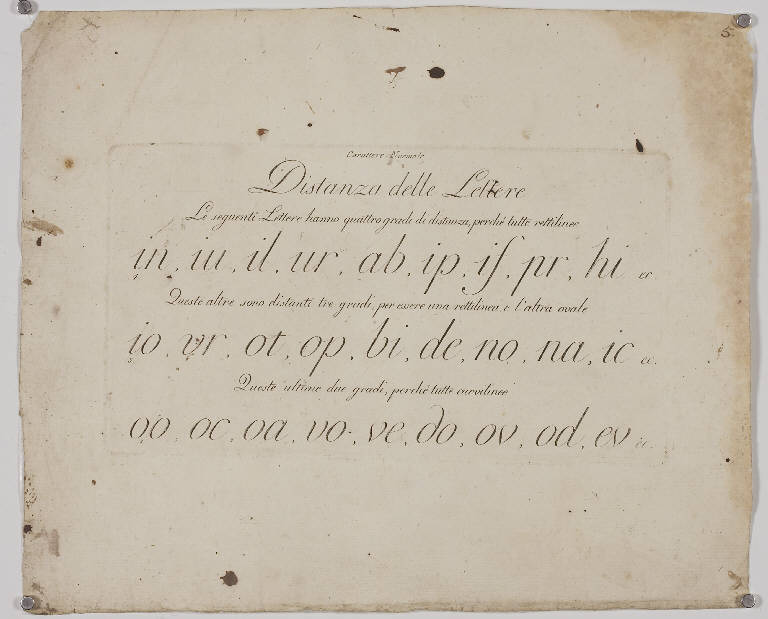 5.
Carattere Normale
Distanza delle Lettere
Le seguenti Lettere hanno quattro gradi di distanza, perché tutte rettilinee
in, iu, il, ur, ab, ip, iſ, pr, hi ec.
Queste altre sono distanti tre gradi, per essere una rettilinea, e l'altra ovale
io, vr, ot, op, bi, de, no, na, ic ec.
Queste ultime due gradi, perché tutte curvilinee
oo, oc, oa, vo, ve, do, ov, od, ev ec.